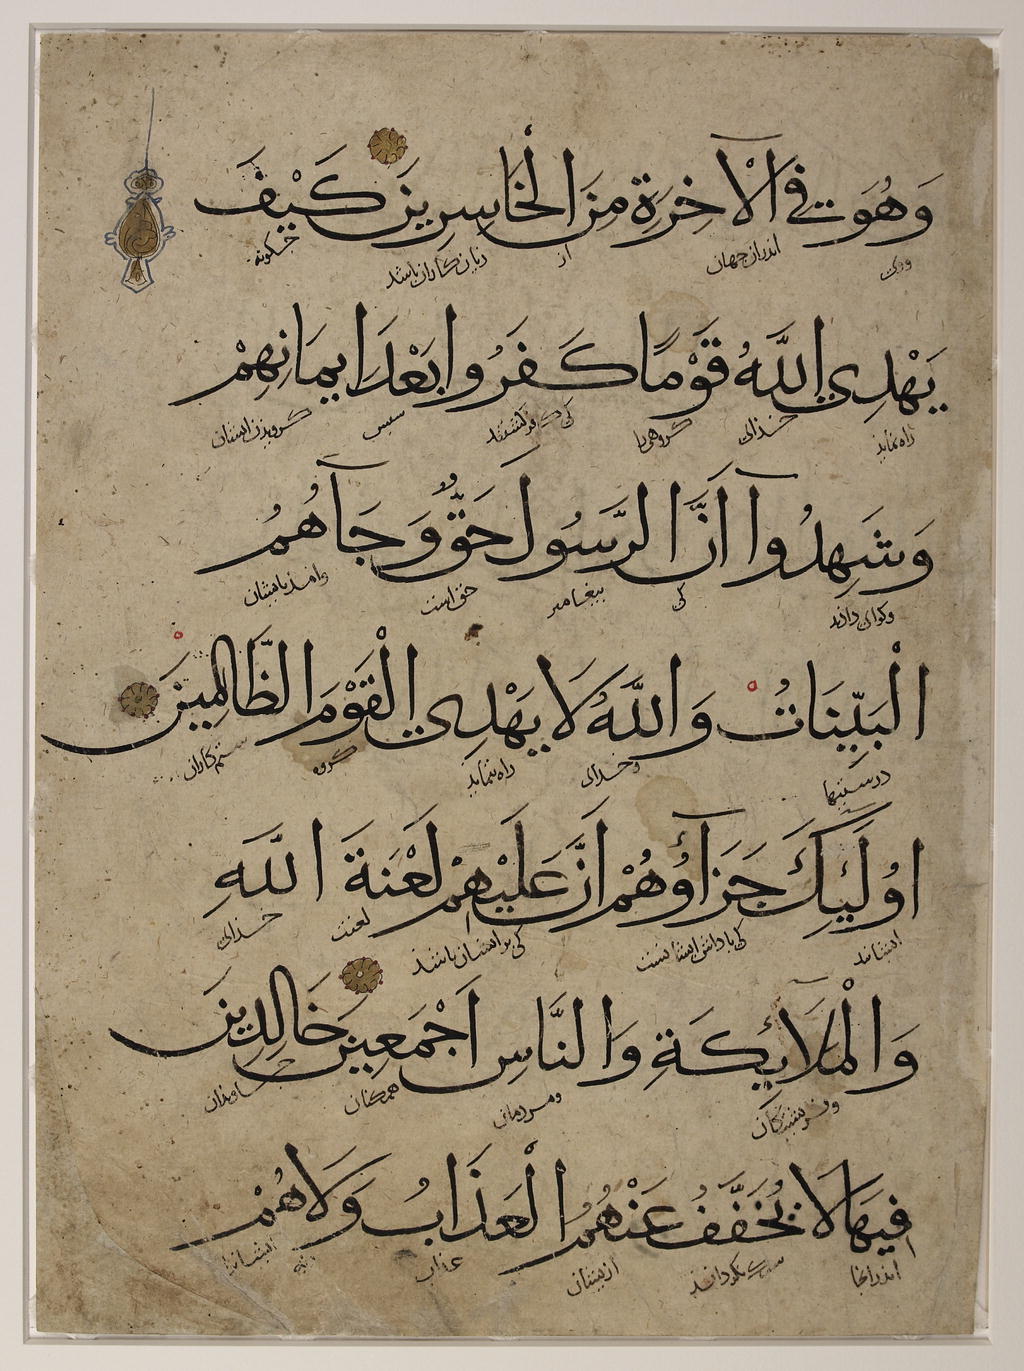 وَهُوَ فِي الْآخِرَةِ مِنَ الْخَاسِرِينَ كَيْفَ
وی اندران جهان از زیان کاران باشد چگونه
يَهْدِي اللَّهُ قَوْمًا كَفَرُوا بَعْدَ ايمَانِهِمْ
راه نماید خدای گروهی را کی کافر گشتند سپس گرویدن ایشان
وَشَهِدُوا أَنَّ الرَّسُولَ حَقٌّ وَجَآهُمُ
وگوای دادند کی پیغامبر حق است وامد بایشان
الْبَيِّنَاتُ وَاللَّهُ لَا يَهْدِي الْقَوْمَ الظَّالِمِينَ
درستیها وخدای راه ننماید گروه ستم کاران
اُولَئِكَ جَزَآؤُهُمْ اَنَّ عَلَيْهِمْ لَعْنَةَ اللَّهِ
ایشانند کی پاداش ایشانست کی بر ایشان باشد لعنت خدای
وَالْمَلَائِكَةِ وَالنَّاسِ اَجْمَعِينَ خَالِدِينَ
وفریشتگان ومردمان همگنان جاویدان
فِيهَا لَا يُخَفَّفُ عَنْهُمُ الْعَذَابُ وَلَا هُمْ
اندرانجا سبک نگردانند ازیشان عذاب ونه ایشانرا